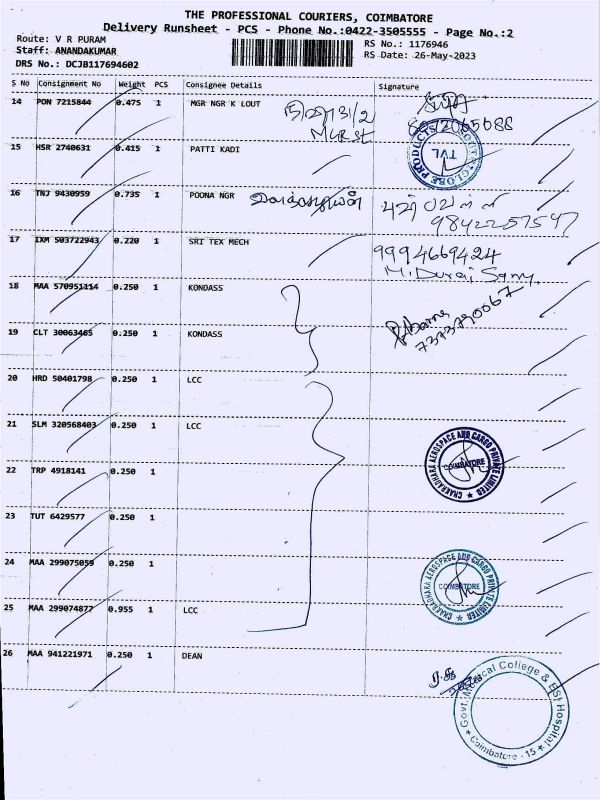 THE PROFESSIONAL COURIERS, COIMBATORE
Delivery Runsheet - PCS - Phone No.:0422-3505555 - Page No.:2
Route: V R PURAM
RS No.: 1176946
Staff: ANANDAKUMAR
RS Date: 26-May-2023
DRS No.: DCJB117694602
S No Consignment No Weight PCS Consignee Details Signature
14 PON 7215844 0.475 1 MGR NGR K LOUT
15 HSR 2740631 0.415 1 PATTI KADI
GLOBE PRODUCTS
TVL
16 TNJ 9430959 0.735 1 POONA NGR
9842257597
17 IXM 503722943 0.220 1 SRI TEX MECH
9994669424
M. Durai Samy
18 MAA 570951114 0.250 1 KONDASS
7373790067
19 CLT 30063465 0.250 1 KONDASS
20 HRD 50401798 0.250 1 LCC
21 SLM 320568403 0.250 1 LCC
CHAKRADHARA AEROSPACE AND CARGO PRIVATE LIMITED
COIMBATORE
22 TRP 4918141 0.250 1
23 TUT 6429577 0.250 1
24 MAA 299075059 0.250 1
CHAKRADHARA AEROSPACE AND CARGO PRIVATE LIMITED
COIMBATORE
25 MAA 299074877 0.955 1 LCC
26 MAA 941221971 0.250 1 DEAN
Govt. Medical College & ESI Hospital
Coimbatore - 15